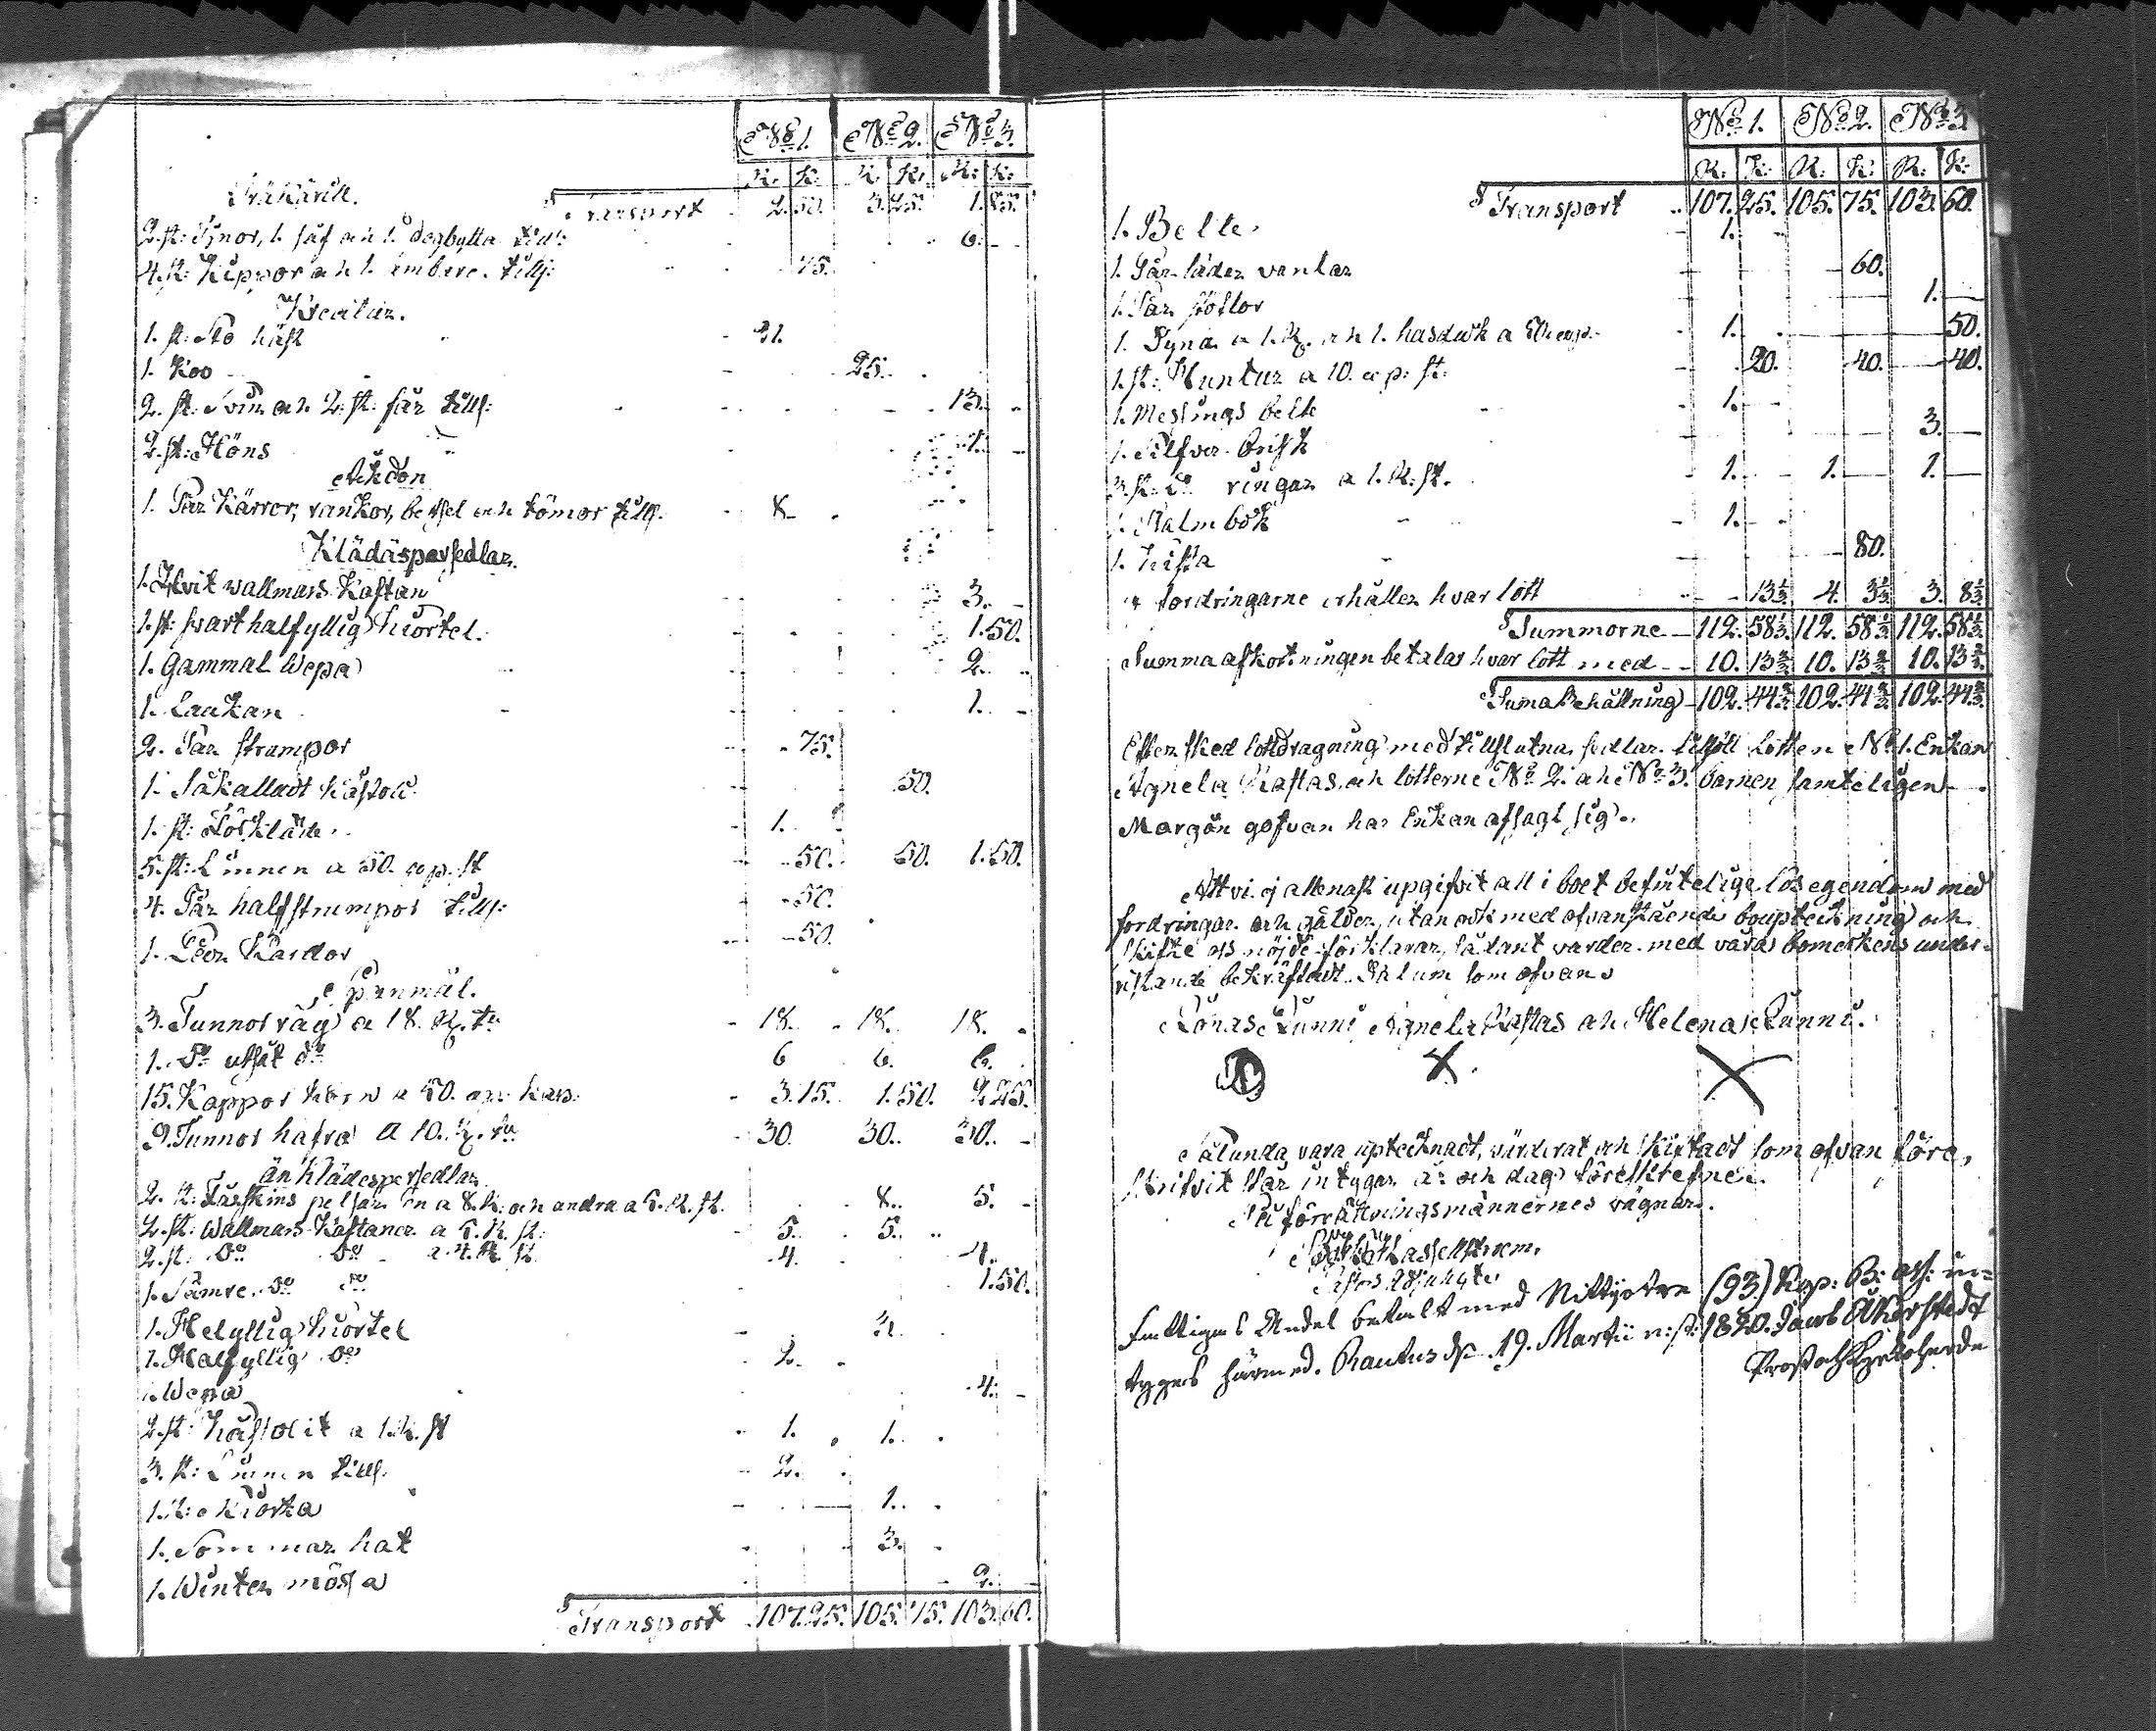 No 1. No 2. No 3.
R. K. R. K. R. K.
Träkäril.
Transport 2. 50. 3. 25. 1. 85.
2. st: Tynor, 1. såf och 1. degbytta 6.
4. st: Kippor och 1. embare. tills: 75.
Kreatur.
1. st: Sto häst 21.
1. Koo 25.
2. st: Svin och 2. st: får tills: 13.
2. st: Höns 1.
Åkdon
1. Par Kärror, rankor, betsel och tömor tills. 8
Klädespersedlar.
1. Hvit wallmars Kaftan 3.
1. st: svart halfyllig kiortel. 1. 50.
1. Gammal Wepa 2.
1. Laakan 1.
2. Par strumpor 75.
1. Såkalladt 50.
1. st: Förkläde 1.
5. st: Linnen a 50. cop. st 50. 50. 1. 50.
4. Par halfstrumpor tills: 50.
1. Par Kardor 50.
Spanmål.
3. Tunnor råg a 18. R. tn 18. 18. 18.
1. Do utsåt do 6 6. 6.
15. Kappor korn a 50. cop. kap. 3. 75. 1. 50. 2. 25.
9. Tunnor hafra a 10. R. tn 30. 30. 30.
än Klädespersedlar
2. st: Fårskins pelsar en a 8. R. och andra a 5. R. st. 8. 5.
2. st: Wallmars Kaftaner a 5. R. st. 5. 5.
2. st: Do Do a 4. R. st. 4. 4.
1. Sämre Do Do 1. 50.
1. Helyllig kiortel 3.
1. Halfyllig Do 2.
1. Wepa 4.
2. st: a 1. R. st 1. 1.
3. st: Linnen tills. 2.
1. st: Skiorta 1.
1. Sommar hat 3.
1. Winter mössa 2.
Transport 107. 25. 105. 75. 103. 60.
No 1. No 2. No 3
R. K. R. K. R. K.
Transport 107. 25. 105. 75. 103. 60.
1. Belte 1.
1. Par läder vantar 60.
1. Par stöflor 1.
1. Tyna a 1. R. och 1. hasduk a 50 cop. 1. 50.
1. st: Huntur a 10. cop: st: 20. 40. 40.
1. Messings belte 1.
1. Silfver Brisk 3.
3. st: Do ringar a 1. R. st. 1. 1. 1.
1. Psalmbok 1.
1. Kista 80.
fordringarne erhåller hvar lott 13 1/3 4. 3 1/3 3. 8 1/3
Summorne 112. 58 1/3 112. 58 1/3 112. 58 1/3
Summa afkortningen betalar hvar lott med 10. 13 2/3 10. 13 2/3 10. 13 2/3
Suma Behållning 102. 44 2/3 102. 44 2/3 102. 44 2/3
Efter sked lottdragning med tillslutna sedlar tilföll Lotten No 1. Enkan
Agneta Rastas, och lotterne No 2. och No 3. barnen samteligen
Morgon gofvan har Enkan afsagt sig.
Att vi ej allenast upgifvit all i boet befintelige lös egendom med
fordringar och gälder, utan ock med ofvanstående bouptekning och
skifte oss nöjde förklarar, sådant varder med våra bomerkens under-
ristande bekräftadt. Datum som ofvan
Jonas Lunni Agneta Rastas och Helena Lunni.
Sålunda vara uptecknadt, värderat och skiftadt som ofvan före,
skrifvit står intygar år och dag föreskrefne.
På förrättningsmännernes vägnar.
Hassellström.
Fattiges Andel betalt med Nittijotre (93.) Kop: B: ass: in=
tyges härmed. Rautus d. 19. Martii 1820. Jacob Åkerstedt
Prost och Kyrkoherde